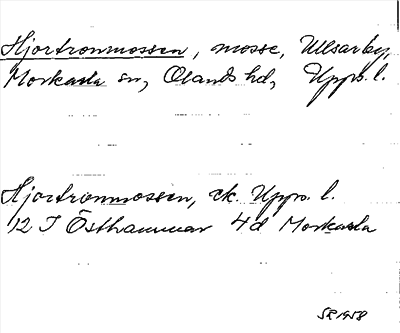 Hjortronmossen, mosse, Ullsarby,
Morkarla sn, Olands hd, Upps. l.
Hjortronmossen, ek. Upps. l.
12 I Östhammar 4d Morkarla
SR 1958